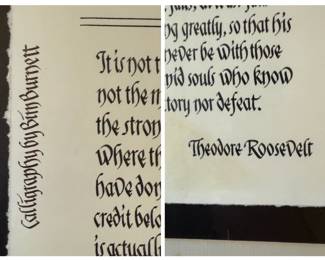 Calligraphy by Bim Burnett
It is not t
not the m
the stron
Where th
have don
credit belo
is actuall
ng greatly, so that his
never be with those
pid souls who know
tory nor defeat.
Theodore Roosevelt